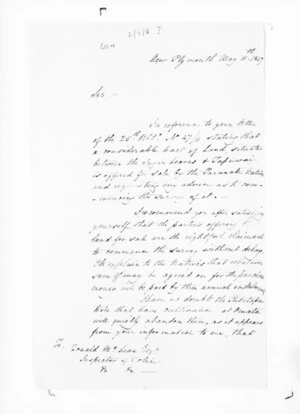 New Plymouth May 11th 1847
Sir
In reference to your letter
of the 26th Ulto. No 47/ stating that
a considerable tract of Land situated
between the Sugar Loaves & Tapuwai
is offered for sale by the Taranaki Natives
and requesting my advice as to com-
mencing the survey of it.
I recommend you after satisfying
yourself that the parties offering
land for sale are the rightful claimants
to commence the survey without delay
explain to the Natives that whatever
sum may be agreed on for the
money will be paid by three annual instalments
I have no doubt the
that have cultivations at Omata
will quietly abandon them, as it appears
from your information to me, that
To Donald McLean Esqr
Inspector of Police